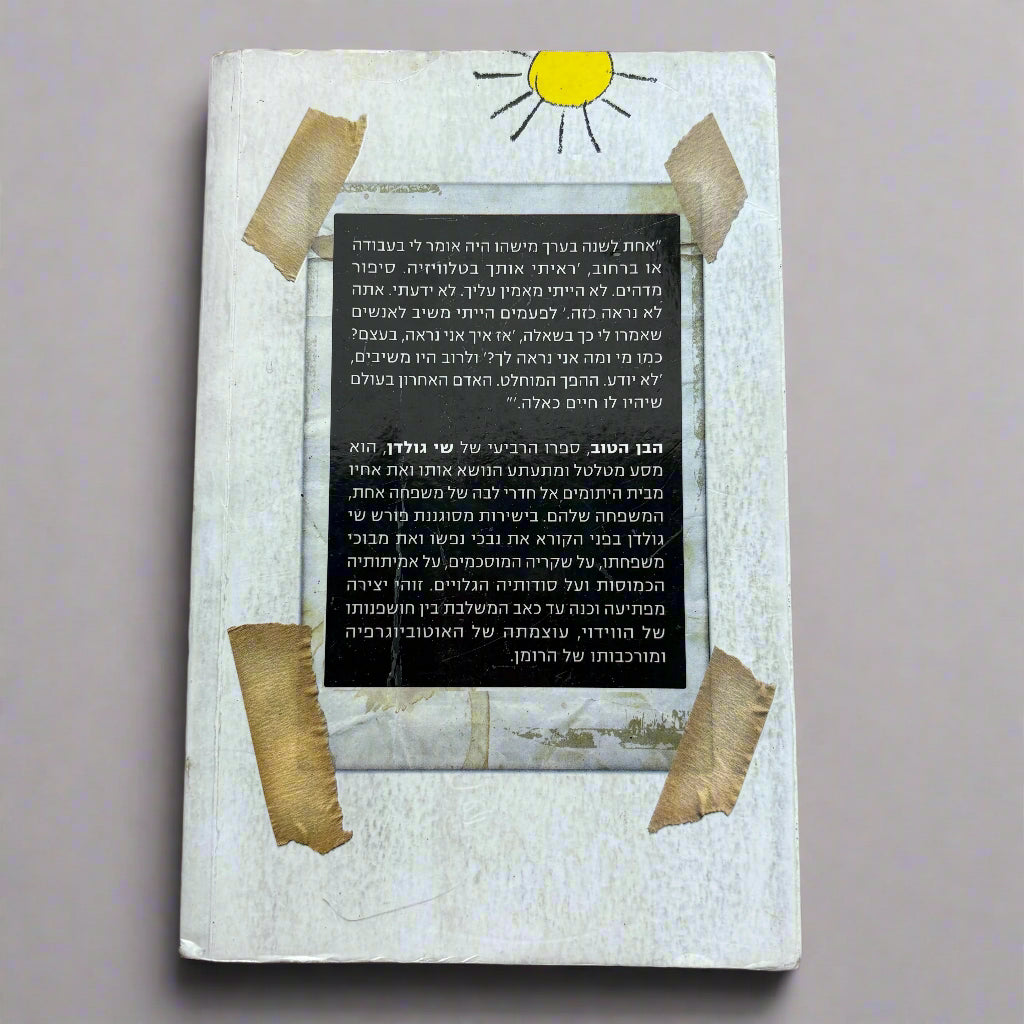 "אחת לשנה בערך מישהו היה אומר לי בעבודה
או ברחוב, 'ראיתי אותך בטלוויזיה. סיפור
מדהים. לא הייתי מאמין עליך. לא ידעתי. אתה
לא נראה כזה.' לפעמים הייתי משיב לאנשים
שאמרו לי כך בשאלה, 'אז איך אני נראה, בעצם?
כמו מי ומה אני נראה לך?' ולרוב היו משיבים,
'לא יודע. ההפך המוחלט. האדם האחרון בעולם
שיהיו לו חיים כאלה.'"
הבן הטוב, ספרו הרביעי של שי גולדן, הוא
מסע מטלטל ומתעתע הנושא אותו ואת אחיו
מבית היתומים אל חדרי לבה של משפחה אחת,
המשפחה שלהם. בישירות מסוגננת פורש שי
גולדן בפני הקורא את נבכי נפשו ואת מבוכי
משפחתו, על שקריה המוסכמים, על אמיתותיה
הכמוסות ועל סודותיה הגלויים. זוהי יצירה
מפתיעה וכנה עד כאב המשלבת בין חושפנותו
של הווידוי, עוצמתה של האוטוביוגרפיה
ומורכבותו של הרומן.